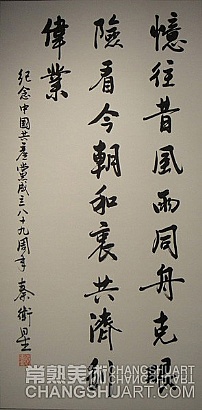 憶往昔風雨同舟克艱
險看今朝和衷共濟創
偉業
紀念中国共產黨成立八十九周年 秦衛星
常熟美术
CHANGSHUART.COM